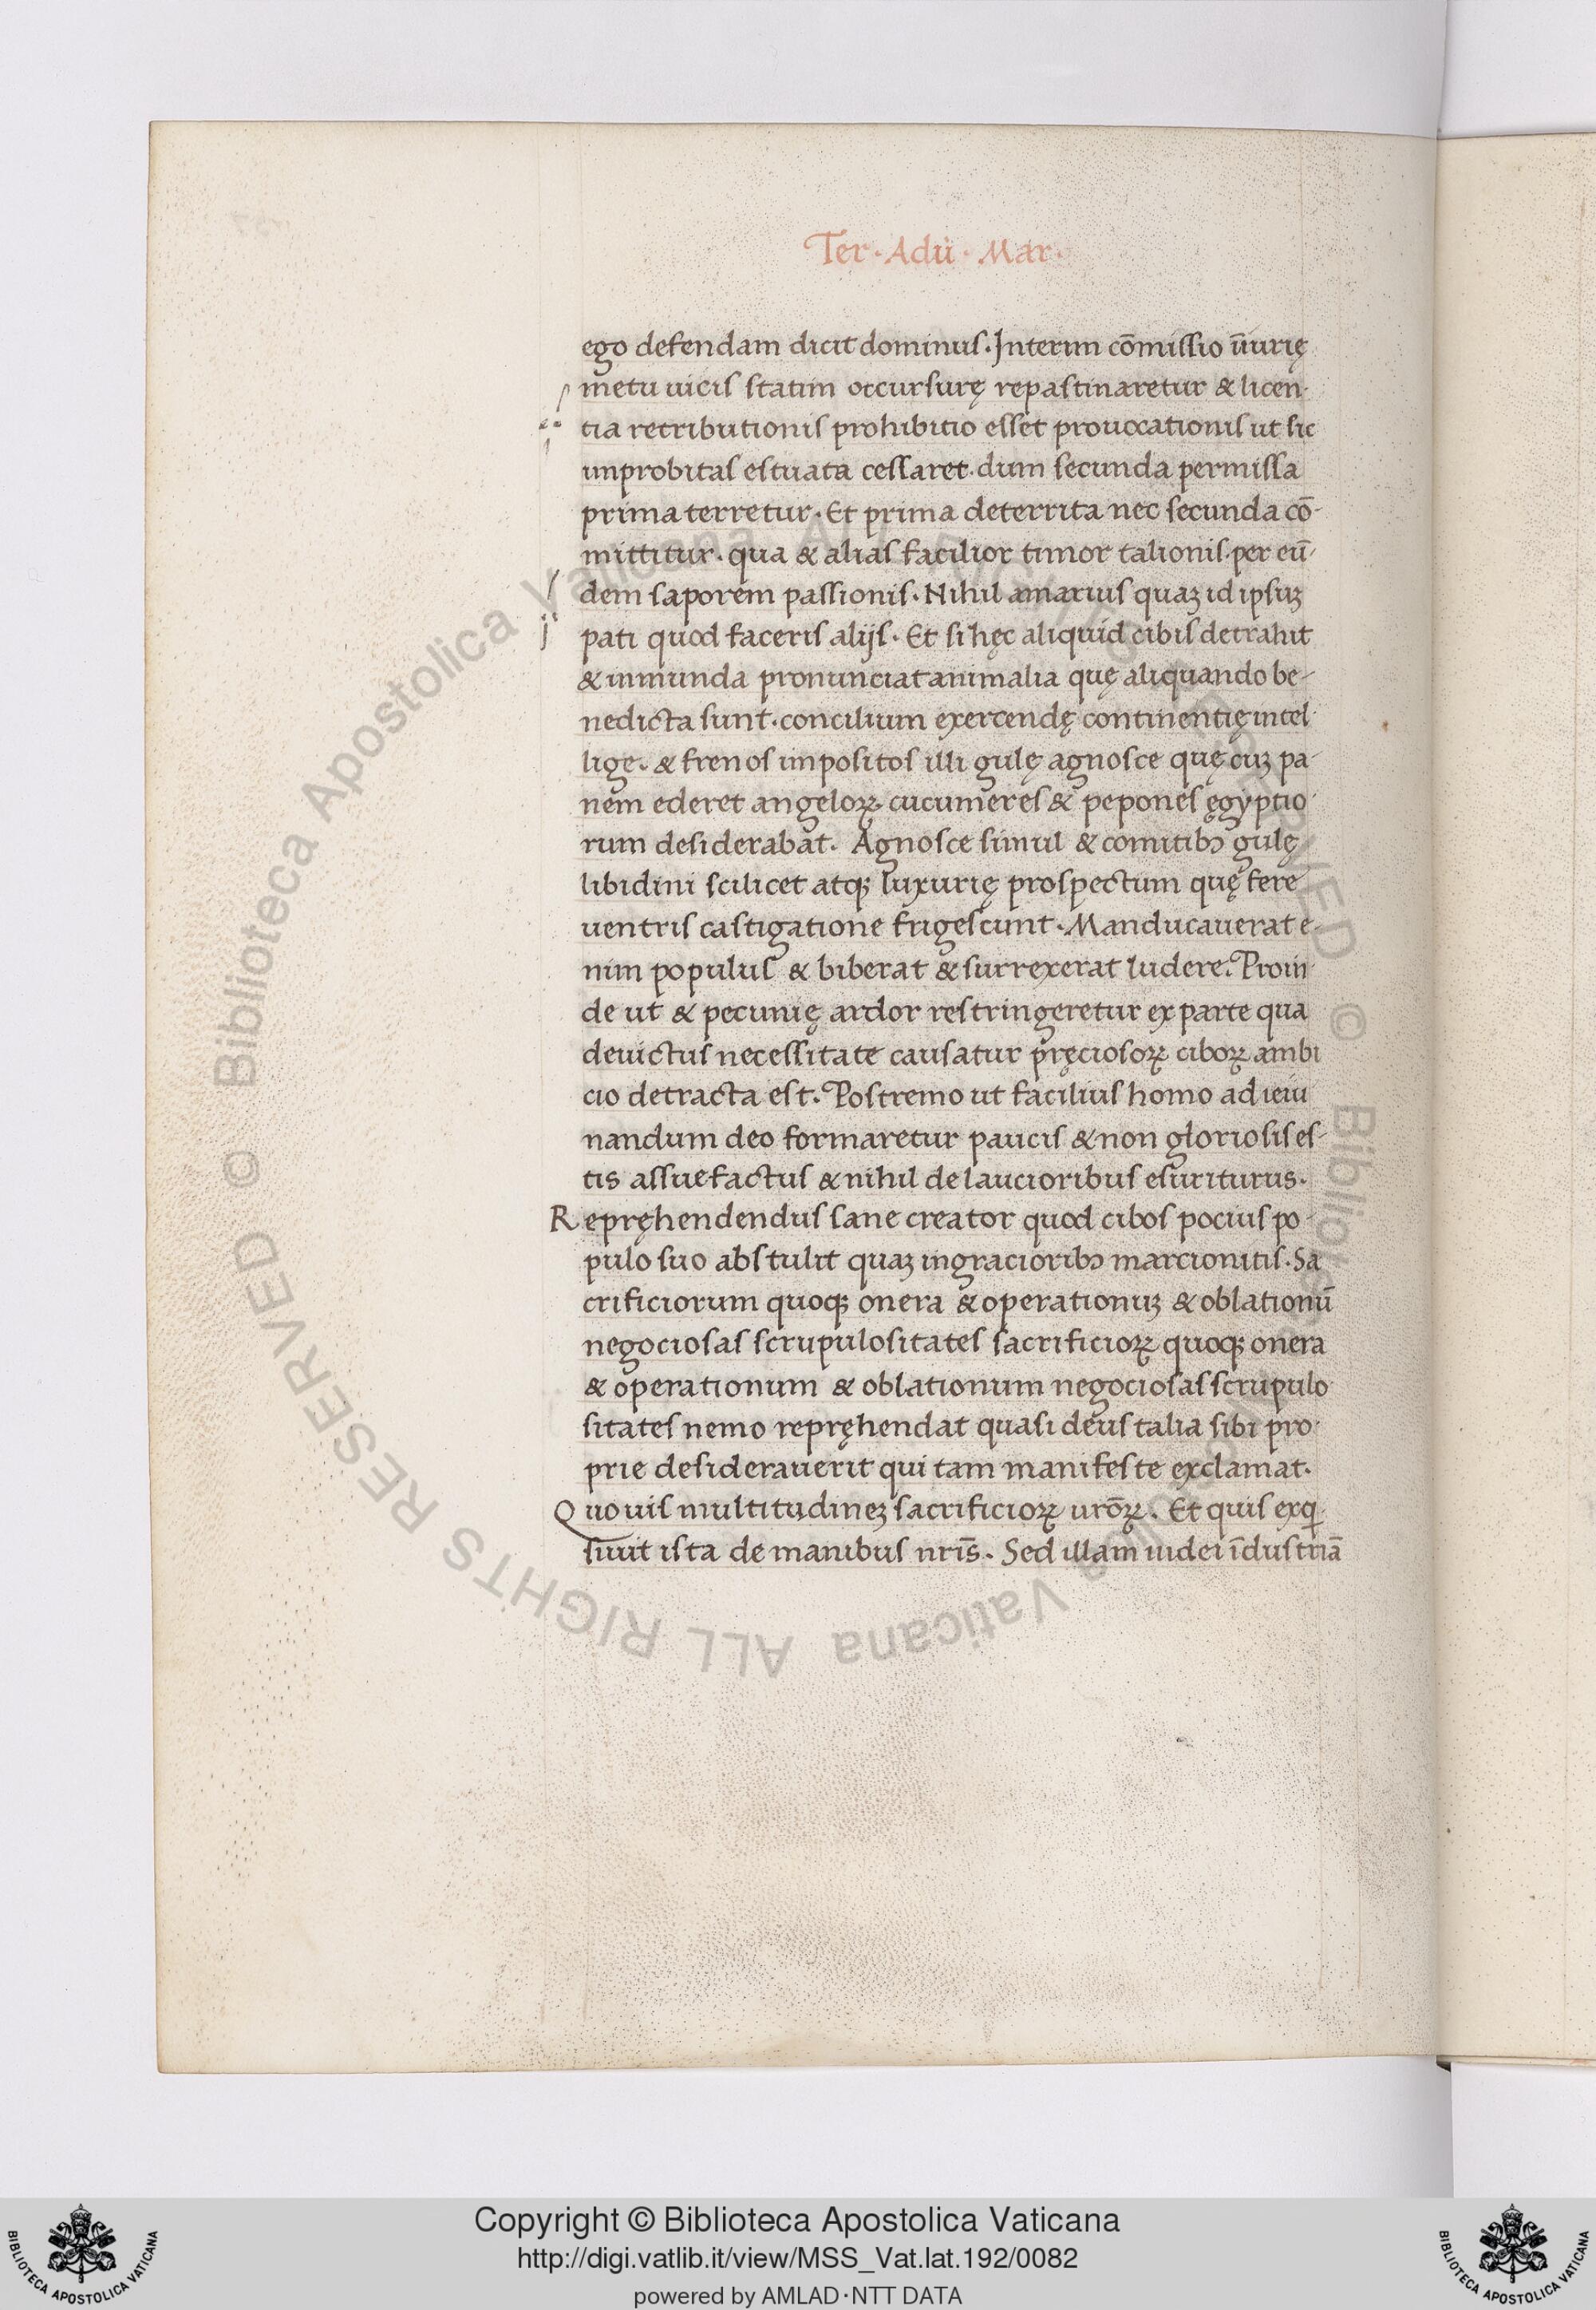 Ter · Adū · Mar ·
ego defendam dicit dominus. Interim cōmissio ūurię
metu uicis statim occursurę repastinaretur & licen-
tia retributionis prohibitio esset prouocationis ut sic
improbitas estuata cessaret. dum secunda permissa
prima terretur. Et prima deterrita nec secunda cō-
mittitur. qua & alias facilior timor talionis. per eū-
dem saporem passionis. Nihil amarius quaꝫ id ipsuꝫ
pati quod faceris alijs. Et si hęc aliquid cibis detrahit
& inmunda pronunciat animalia quę aliquando be-
nedicta sunt. concilium exercendę continentię intel-
lige. & frenos impositos illi gulę agnosce quę cuꝫ pa-
nem ederet angeloꝝ. cucumeres & pepones ęgyptio-
rum desiderabat. Agnosce simul & comitibꝰ gulę
libidini scilicet atqꝫ luxurię prospectum quę fere
uentris castigatione frigescunt. Manducauerat e-
nim populus & biberat & surrexerat ludere. Proin-
de ut & pecunię ardor restringeretur ex parte qua
deuictus necessitate causatur pręciosoꝝ ciboꝝ ambi
cio detracta est. Postremo ut facilius homo ad ieiu
nandum deo formaretur paucis & non gloriosis es-
tis assuefactus & nihil de laucioribus esuriturus.
Repręhendendus sane creator quod cibos pocius po-
pulo suo abstulit quaꝫ ingracioribꝰ marcionitis. Sa
crificiorum quoqꝫ onera & operationuꝫ & oblationū
negociosas scrupulositates sacrificioꝝ quoqꝫ onera
& operationum & oblationum negociosas scrupulo
sitates nemo repręhendat quasi deus talia sibi pro-
prie desiderauerit qui tam manifeste exclamat.
Quo uis multitudineꝫ sacrificioꝝ urōꝝ. Et quis exq
siuit ista de manibus nrīs. Sed illam iudei īdustriā
© Biblioteca Apostolica Vaticana ALL RIGHTS RESERVED © Biblioteca Apostolica Vaticana ALL RIGHTS RESERVED
Copyright © Biblioteca Apostolica Vaticana
http://digi.vatlib.it/view/MSS_Vat.lat.192/0082
powered by AMLAD·NTT DATA
BIBLIOTECA APOSTOLICA VATICANA
BIBLIOTECA APOSTOLICA VATICANA